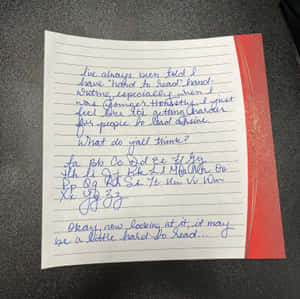 I've always been told I
have "hard to read" hand-
writing, especially when I
was younger. Honestly, I just
feel like it's getting harder
for people to read cursive.
What do y'all think?
Aa Bb Cc Dd Ee Ff Gg
Hh Ii Jj Kk Ll Mm Nn Oo
Pp Qq Rr Ss Tt Uu Vv Ww
Xx Yy Zz
Okay, now looking at it, it may
be a little hard to read...